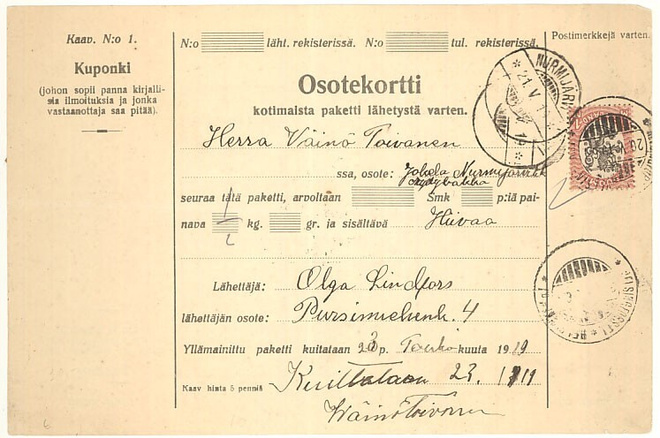 Kaav. N:o 1.
Kuponki
(johon sopii panna kirjalli-
sia ilmoituksia ja jonka
vastaanottaja saa pitää).
N:o läht. rekisterissä. N:o tul. rekisterissä.
Postimerkkejä varten.
Osotekortti
kotimaista paketti lähetystä varten.
Herra Väinö Toivanen
ssa, osote: Jokela Nurmijärvi
seuraa tätä paketti, arvoltaan Smk p:iä pai-
nava kg. gr. ja sisältävä Hiivaa
Lähettäjä: Olga Lindfors
lähettäjän osote: Pursimiehenk. 4
Yllämainittu paketti kuitataan 23 p. Touko kuuta 1919
Naav hinta 5 penniä
Kuittataan 23. 1919
Wäinö Toivonen
NURMIJÄRVI
21.V.